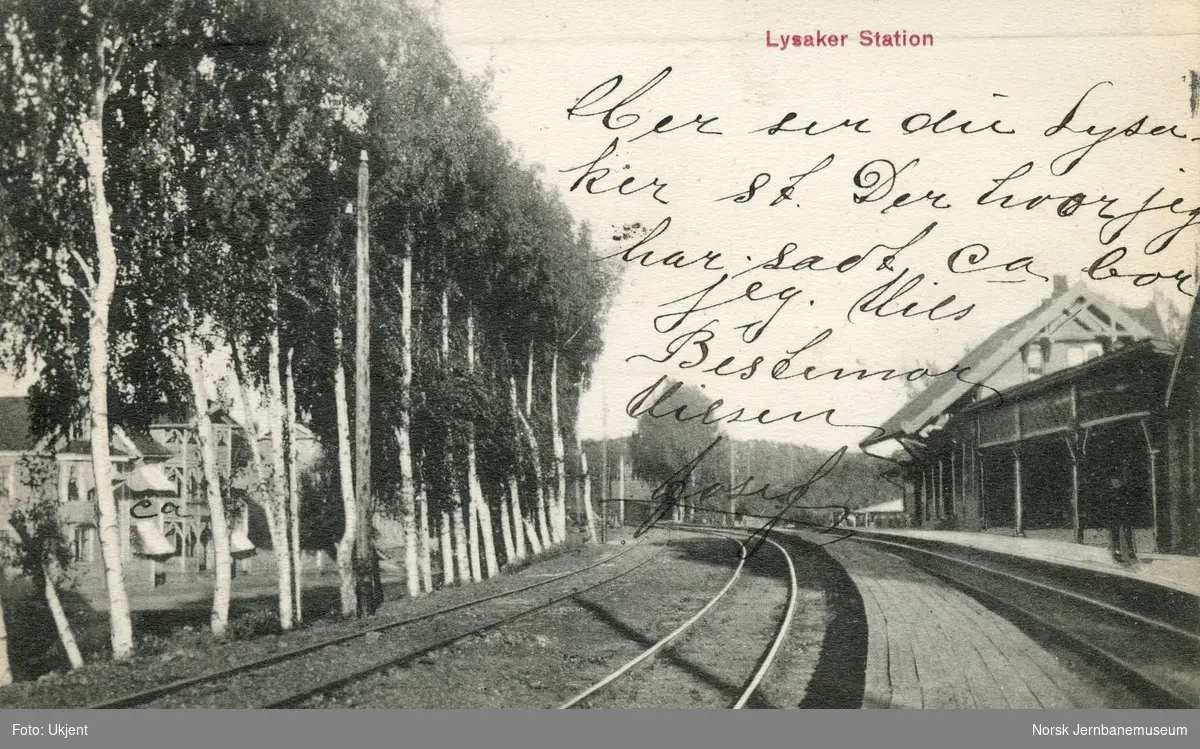 Lysaker Station
Her ser du Lysa-
ker st. Der hvor jeg
har sadt ca bor
jeg. Hils
Bestemor
Hilsen
Josef
ca
Foto: Ukjent
Norsk Jernbanemuseum